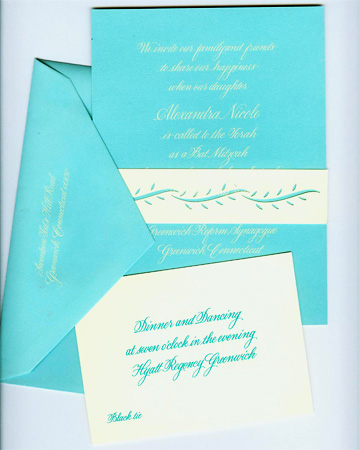 We invite our family and friends
to share our happiness
when our daughter
Alexandra Nicole
is called to the Torah
as a Bat Mitzvah
Greenwich Reform Synagogue
Greenwich Connecticut
Greenwich Connecticut
Dinner and Dancing
at seven o'clock in the evening
Hyatt Regency Greenwich
Black tie